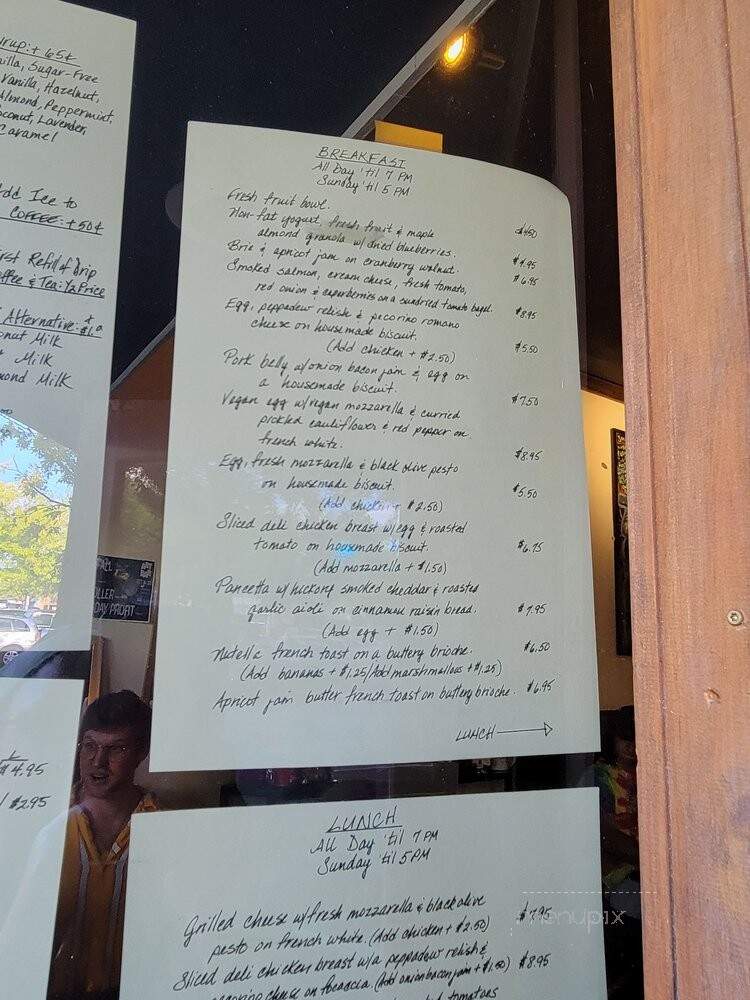 yrup: + 65¢
nilla, Sugar-Free
Vanilla, Hazelnut,
Almond, Peppermint
Coconut, Lavender,
Caramel
Add Ice to
COFFEE: +50¢
First Refill of Drip
offee & Tea: ½ Price
Alternative: + $1.⁰
onut Milk
Milk
mond Milk
$4.95
$2.95
BREAKFAST
All Day 'til 7 PM
Sunday 'til 5 PM
Fresh fruit bowl. $4.50
Non-fat yogurt, fresh fruit & maple
almond granola w/ dried blueberries. $4.95
Brie & apricot jam on cranberry walnut. $6.95
Smoked salmon, cream cheese, fresh tomato,
red onion & caperberries on a sundried tomato bagel. $8.95
Egg, peppadew relish & pecorino romano
cheese on housemade biscuit. $5.50
(Add chicken + $2.50)
Pork belly w/ onion bacon jam & egg on
a housemade biscuit. $7.50
Vegan egg w/ vegan mozzarella & curried
pickled cauliflower & red pepper on
french white. $8.95
Egg, fresh mozzarella & black olive pesto
on housemade biscuit. $5.50
(Add chicken + $2.50)
Sliced deli chicken breast w/ egg & roasted
tomato on housemade biscuit. $6.75
(Add mozzarella + $1.50)
Pancetta w/ hickory smoked cheddar & roasted
garlic aioli on cinnamon raisin bread. $7.95
(Add egg + $1.50)
Nutella french toast on a buttery brioche. $6.50
(Add bananas + $1.25/Add marshmallows + $1.25)
Apricot jam butter french toast on buttery brioche. $6.95
LUNCH →
LUNCH
All Day 'til 7 PM
Sunday 'til 5 PM
Grilled cheese w/ fresh mozzarella & black olive $7.95
pesto on french white. (Add chicken + $2.50)
Sliced deli chicken breast w/ a peppadew relish & $8.95
pecorino cheese on focaccia. (Add onion bacon jam + $1.50)
tomatoes
DAY PROFIT
menupix